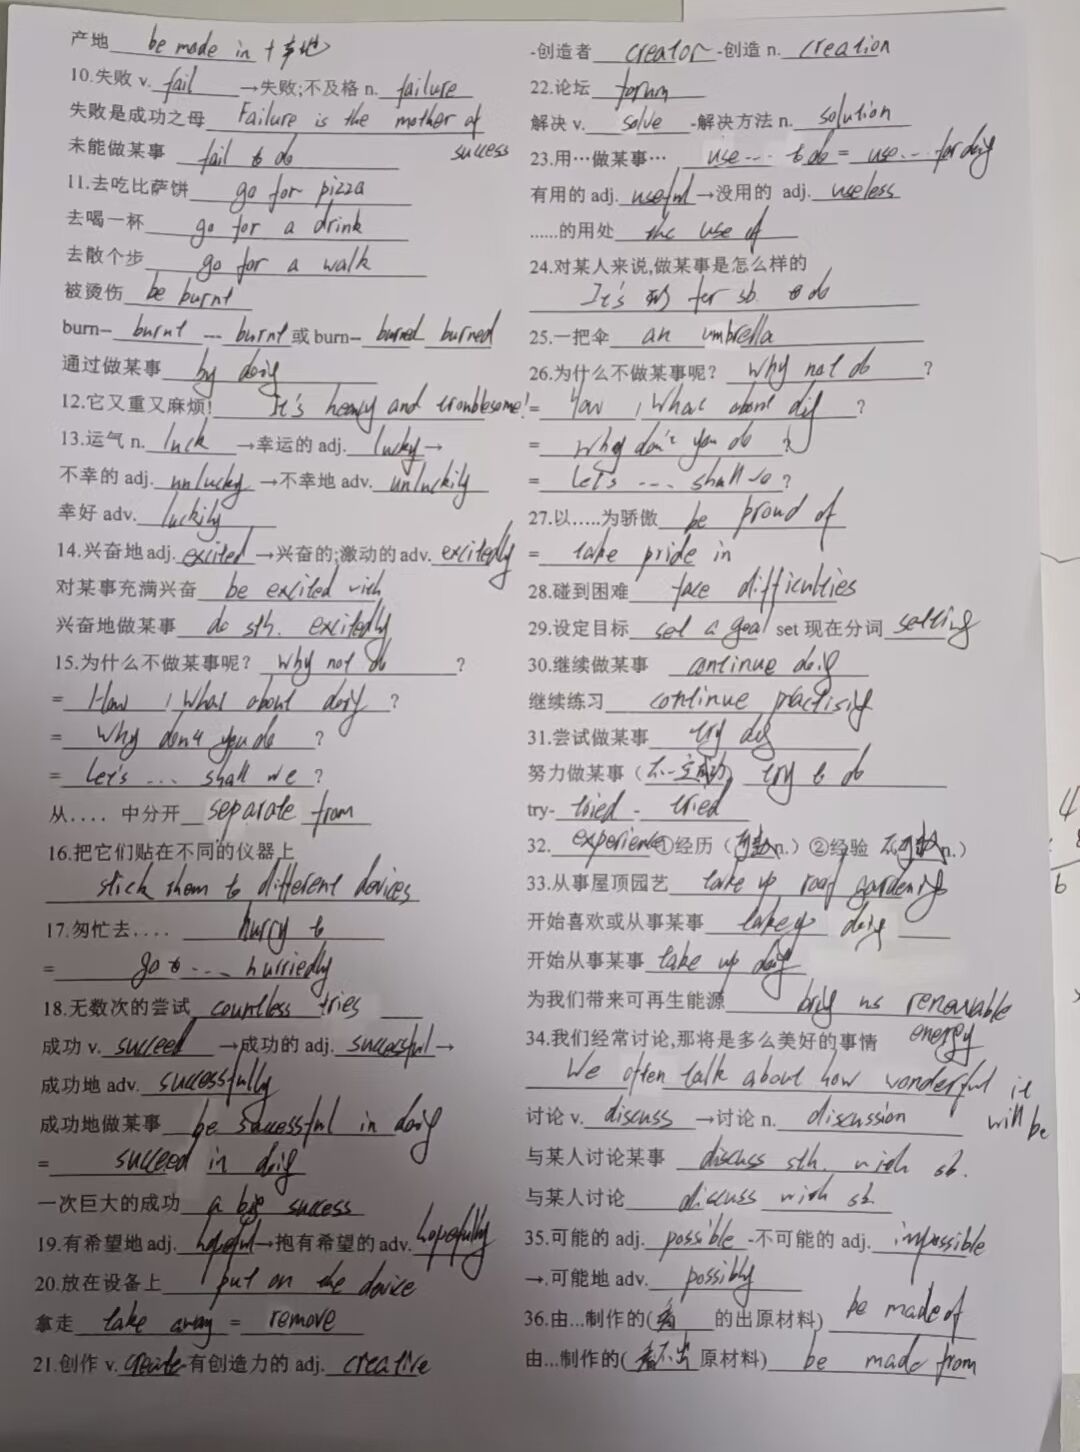 产地 be made in + 产地
10.失败 v. fail →失败;不及格 n. failure
失败是成功之母 Failure is the mother of success
未能做某事 fail to do
11.去吃比萨饼 go for pizza
去喝一杯 go for a drink
去散个步 go for a walk
被烫伤 be burnt
burn-- burnt --- burnt 或 burn-- burned burned
通过做某事 by doing
12.它又重又麻烦! It's heavy and troublesome!
13.运气 n. luck →幸运的 adj. lucky →
不幸的 adj. unlucky →不幸地 adv. unluckily
幸好 adv. luckily
14.兴奋地 adj. excited →兴奋的;激动的 adv. excitedly
对某事充满兴奋 be excited with
兴奋地做某事 do sth. excitedly
15.为什么不做某事呢? Why not do ?
= How / What about doing ?
= Why don't you do ?
= Let's ... shall we ?
从.... 中分开 separate from
16.把它们贴在不同的仪器上
stick them to different devices
17.匆忙去.... hurry to
= go to ... hurriedly
18.无数次的尝试 countless tries
成功 v. succeed →成功的 adj. successful →
成功地 adv. successfully
成功地做某事 be successful in doing
= succeed in doing
一次巨大的成功 a big success
19.有希望地 adj. hopeful →抱有希望的 adv. hopefully
20.放在设备上 put on the device
拿走 take away = remove
21.创作 v. create 有创造力的 adj. creative
-创造者 creator -创造 n. creation
22.论坛 forum
解决 v. solve -解决方法 n. solution
23.用…做某事… use ... to do = use ... for doing
有用的 adj. useful →没用的 adj. useless
......的用处 the use of
24.对某人来说,做某事是怎么样的
It's for sb. to do
25.一把伞 an umbrella
26.为什么不做某事呢? Why not do ?
= How / What about doing ?
= Why don't you do ?
= Let's ... shall we ?
27.以.....为骄傲 be proud of
= take pride in
28.碰到困难 face difficulties
29.设定目标 set a goal set 现在分词 setting
30.继续做某事 continue doing
继续练习 continue practising
31.尝试做某事 try doing
努力做某事 (不一定成功) try to do
try- tried - tried
32. experience ①经历 (可数 n.) ②经验 不可数 n.)
33.从事屋顶园艺 take up roof gardening
开始喜欢或从事某事 take up doing
开始从事某事 take up doing
为我们带来可再生能源 bring us renewable energy
34.我们经常讨论,那将是多么美好的事情
We often talk about how wonderful it will be
讨论 v. discuss →讨论 n. discussion
与某人讨论某事 discuss sth. with sb.
与某人讨论 discuss with sb.
35.可能的 adj. possible -不可能的 adj. impossible
→.可能地 adv. possibly
36.由...制作的( 看 的出原材料) be made of
由...制作的( 看不出 原材料) be made from